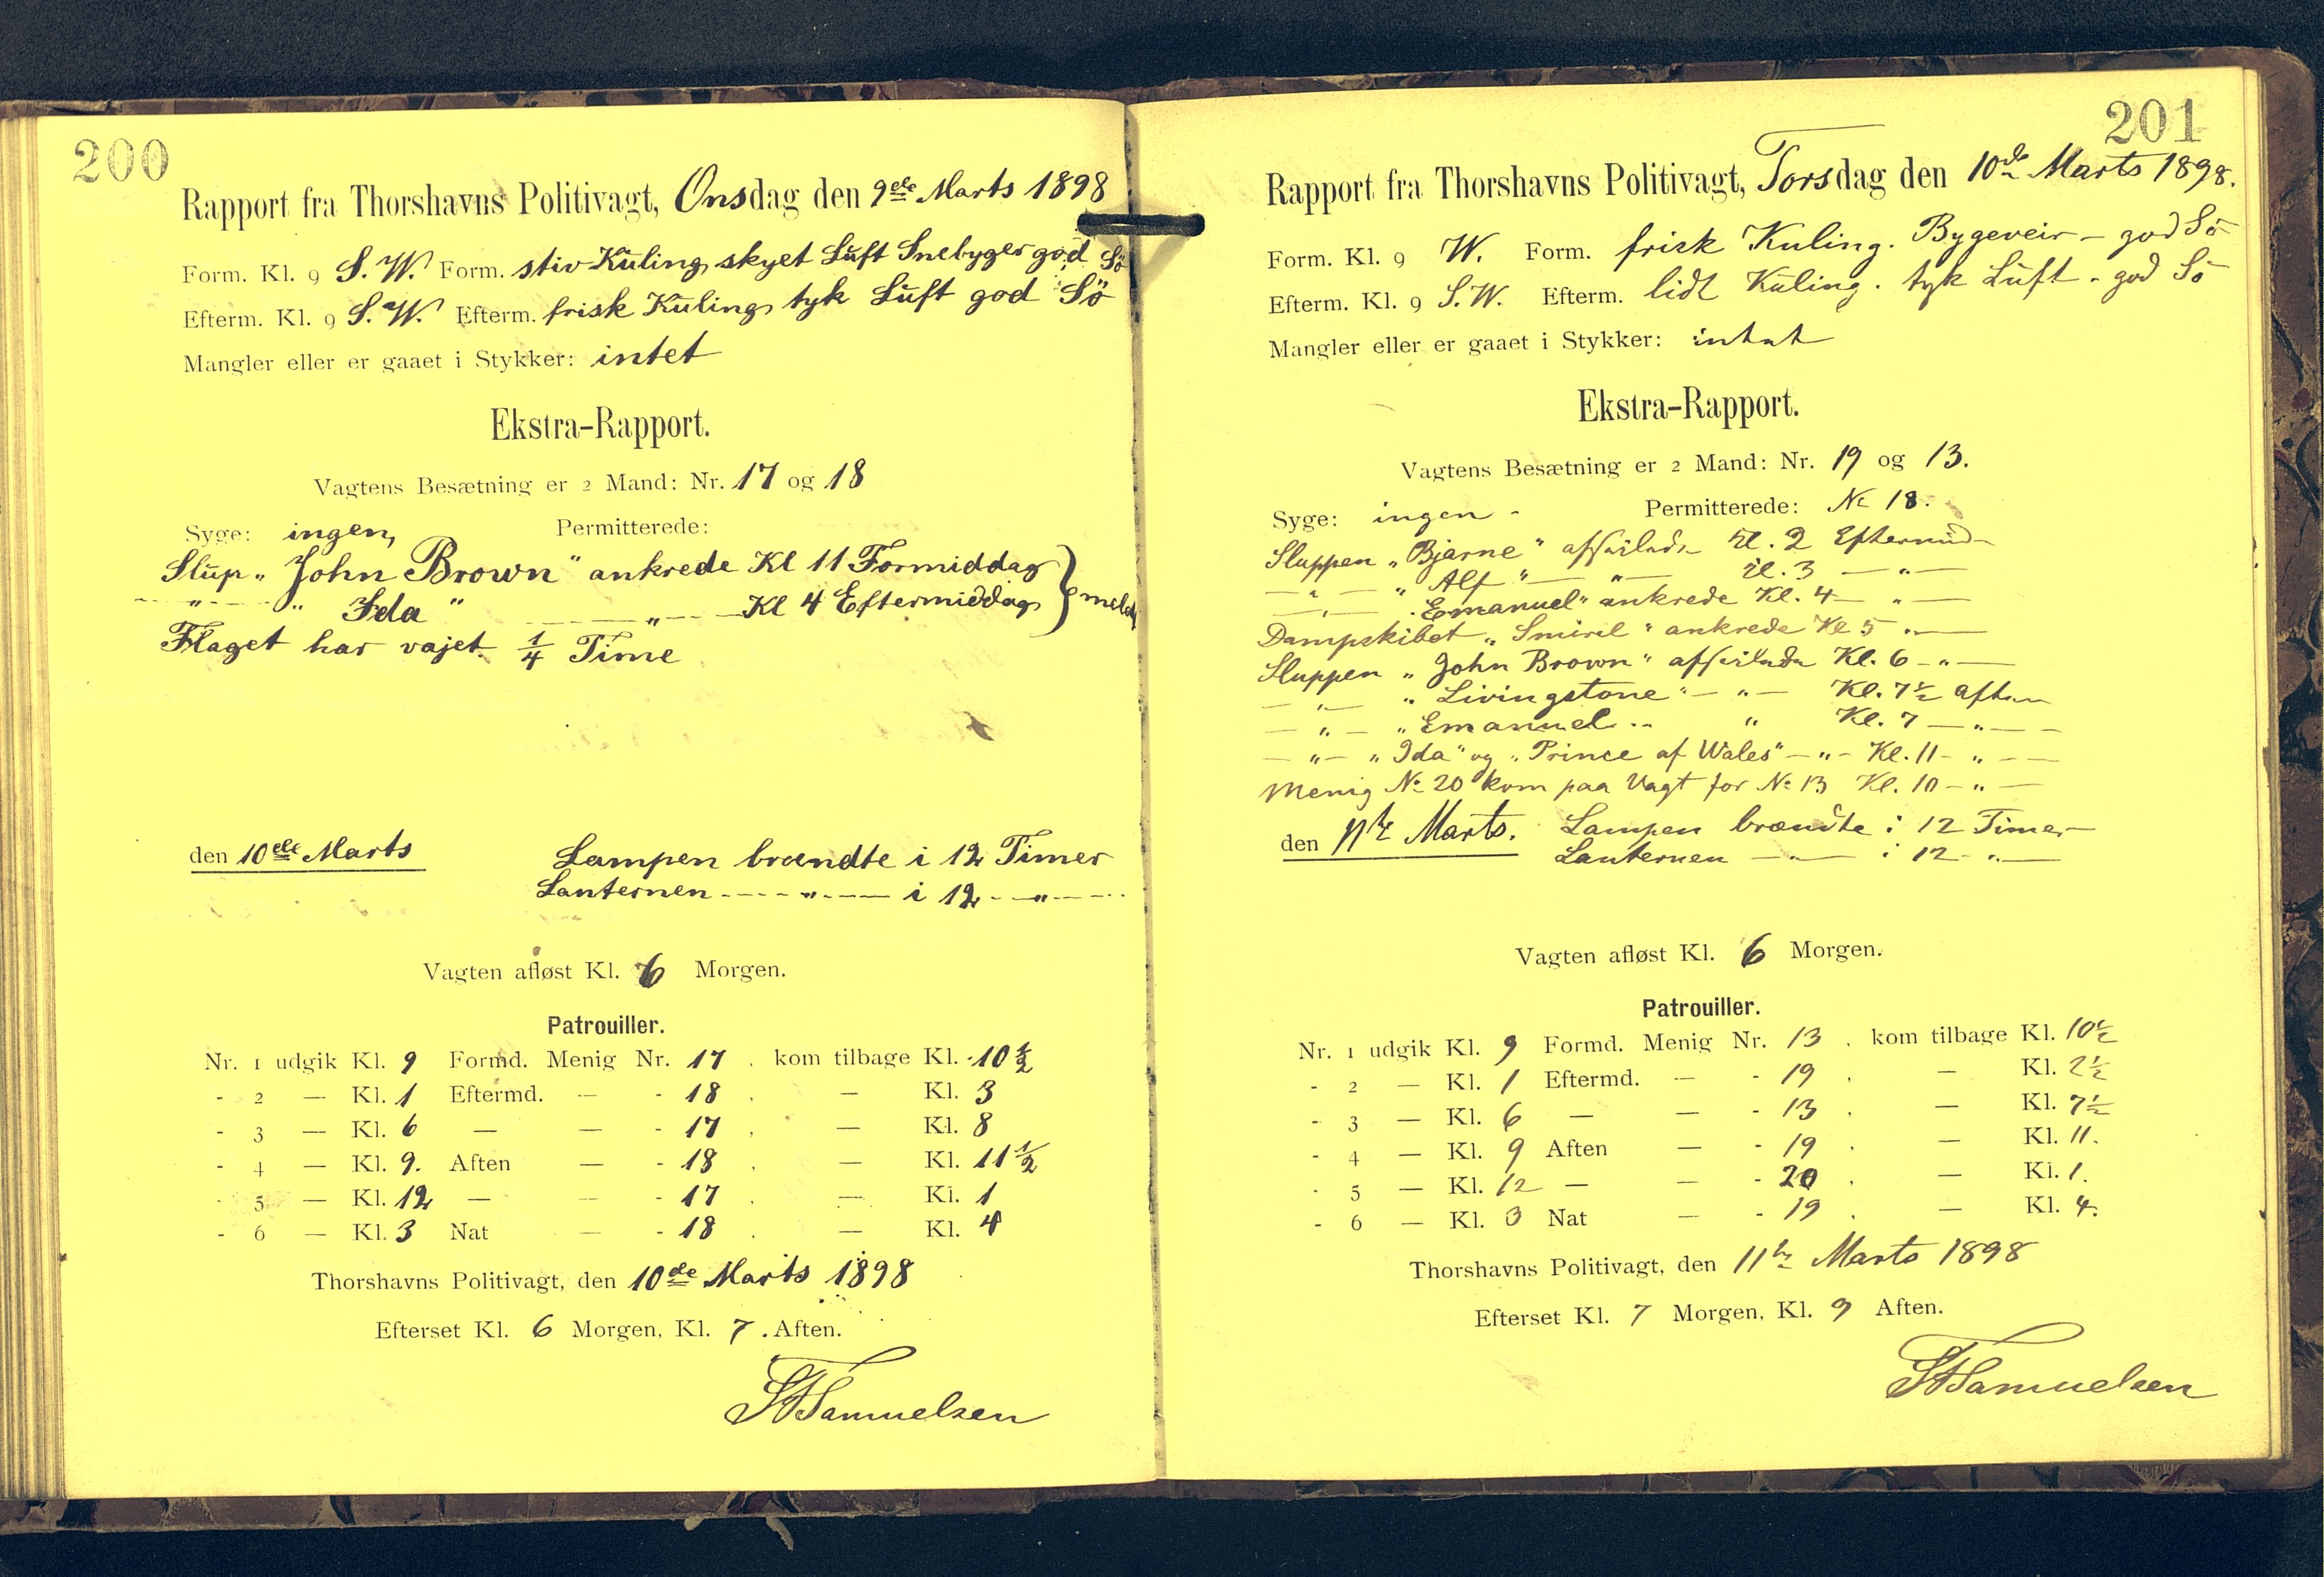 200
Rapport fra Thorshavns Politivagt, Onsdag den 9de Marts 1898
Form. Kl. 9 S. W. Form. stiv Kuling, skyet Luft Snebyger god Sö
Efterm. Kl. 9 S. W. Efterm. frisk Kuling, tyk Luft god Sö
Mangler eller er gaaet i Stykker: intet
Ekstra-Rapport.
Vagtens Besætning er 2 Mand: Nr. 17 og 18
Syge: ingen, Permitterede:
Slup „John Brown“ ankrede Kl 11 Formiddag
— „ — „Ida“ — „ — Kl 4 Eftermiddag } meldt
Flaget har vajet 1/4 Time
den 10de Marts Lampen brændte i 12 Timer
Lanternen — „ — i 12 — „ —
Vagten afløst Kl. 6 Morgen.
Patrouiller.
Nr. 1 udgik Kl. 9 Formd. Menig Nr. 17 . kom tilbage Kl. 10 1/2
- 2 — Kl. 1 Eftermd. — - 18 . — Kl. 3
- 3 — Kl. 6 — — - 17 . — Kl. 8
- 4 — Kl. 9. Aften — - 18 . — Kl. 11 1/2
- 5 — Kl. 12 — — - 17 . — Kl. 1
- 6 — Kl. 3 Nat — - 18 . — Kl. 4
Thorshavns Politivagt, den 10de Marts 1898
Efterset Kl. 6 Morgen, Kl. 7. Aften.
Samuelsen
201
Rapport fra Thorshavns Politivagt, Torsdag den 10de Marts 1898.
Form. Kl. 9 W. Form. frisk Kuling. Bygeveir – god Sö
Efterm. Kl. 9 S.W. Efterm. lidt Kuling. tyk Luft - god Sö
Mangler eller er gaaet i Stykker: intet
Ekstra-Rapport.
Vagtens Besætning er 2 Mand: Nr. 19 og 13.
Syge: ingen - Permitterede: No 18.
Sluppen „Bjarne“ afseilede Kl. 2 Eftermid–
— „ — „Alf“ — „ — Kl. 3 — „ —
— „ — „Emanuel“ ankrede Kl. 4 — „ —
Dampskibet „Smiril“ ankrede Kl 5 „ —
Sluppen „John Brown“ afseilede Kl. 6 – „ —
— „ — „Livingstone“ – „ – Kl. 7 1/2 aften
— „ — „Emanuel „ Kl. 7 — „ —
— „ — „Ida“ og „Prince af Wales“ – „ – Kl. 11 – „ —
Menig No 20 kom paa Vagt for No 13 Kl. 10 – „ —
den 11te Marts. Lampen brændte i 12 Timer
Lanternen — „ — i 12 - „ —
Vagten afløst Kl. 6 Morgen.
Patrouiller.
Nr. 1 udgik Kl. 9 Formd. Menig Nr. 13 . kom tilbage Kl. 10 1/2
- 2 — Kl. 1 Eftermd. — - 19 . — Kl. 2 1/2
- 3 — Kl. 6 — — - 13 . — Kl. 7 1/2
- 4 — Kl. 9 Aften — - 19 . — Kl. 11.
- 5 — Kl. 12 — — - 20 . — Kl. 1.
- 6 — Kl. 3 Nat — - 19 . — Kl. 4.
Thorshavns Politivagt, den 11te Marts 1898
Efterset Kl. 7 Morgen, Kl. 9 Aften.
Samuelsen